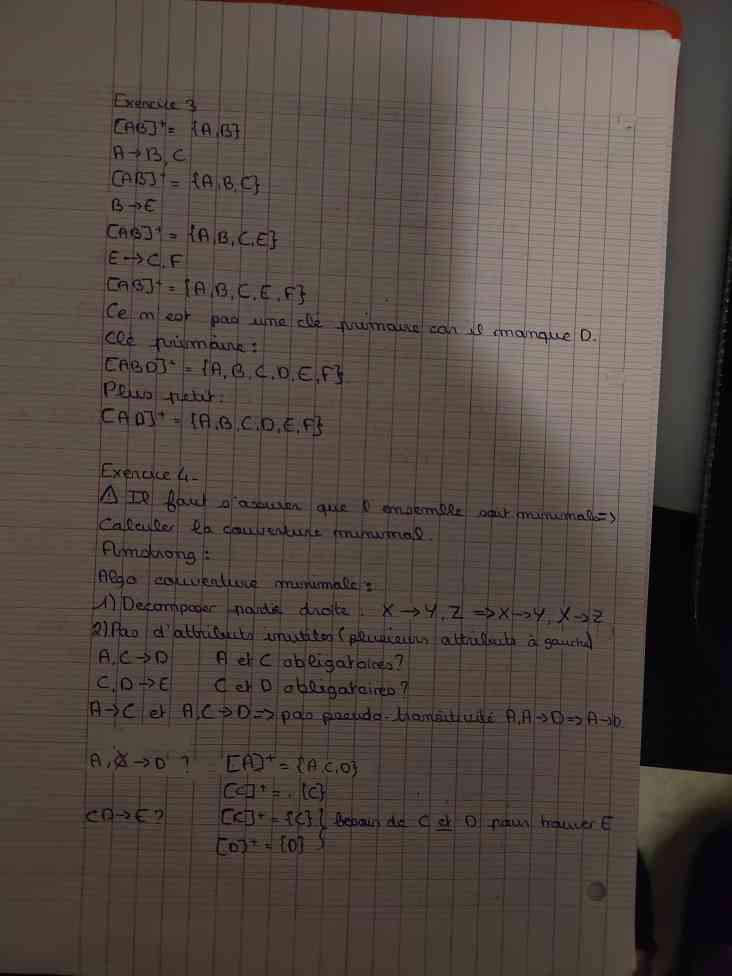 Exercice 3
[AB]⁺ = {A,B}
A → B, C
[AB]⁺ = {A,B,C}
B → E
[AB]⁺ = {A,B,C,E}
E → C,F
[AB]⁺ = {A,B,C,E,F}
Ce n'est pas une clé primaire car il manque D.
Clé primaire :
[ABD]⁺ = {A,B,C,D,E,F}
Plus petit :
[AD]⁺ = {A,B,C,D,E,F}
Exercice 4.
⚠ Il faut s'assurer que l'ensemble soit minimale =>
Calculer la couverture minimal.
Amstrong :
Algo couverture minimale :
1) Decomposer partie droite : X → Y, Z => X → Y, X → Z
2) Pas d'attributs inutiles (plusieurs attributs à gauche)
A, C → D A et C obligatoires ?
C, D → E C et D obligatoires ?
A → C et A, C → D => par pseudo-transitivité A, A → D => A → D
A, C → D ? [A]⁺ = {A,C,D}
[C]⁺ = {C}
CD → E ? [C]⁺ = {C} } Besoin de C et D pour trouver E
[D]⁺ = {D}